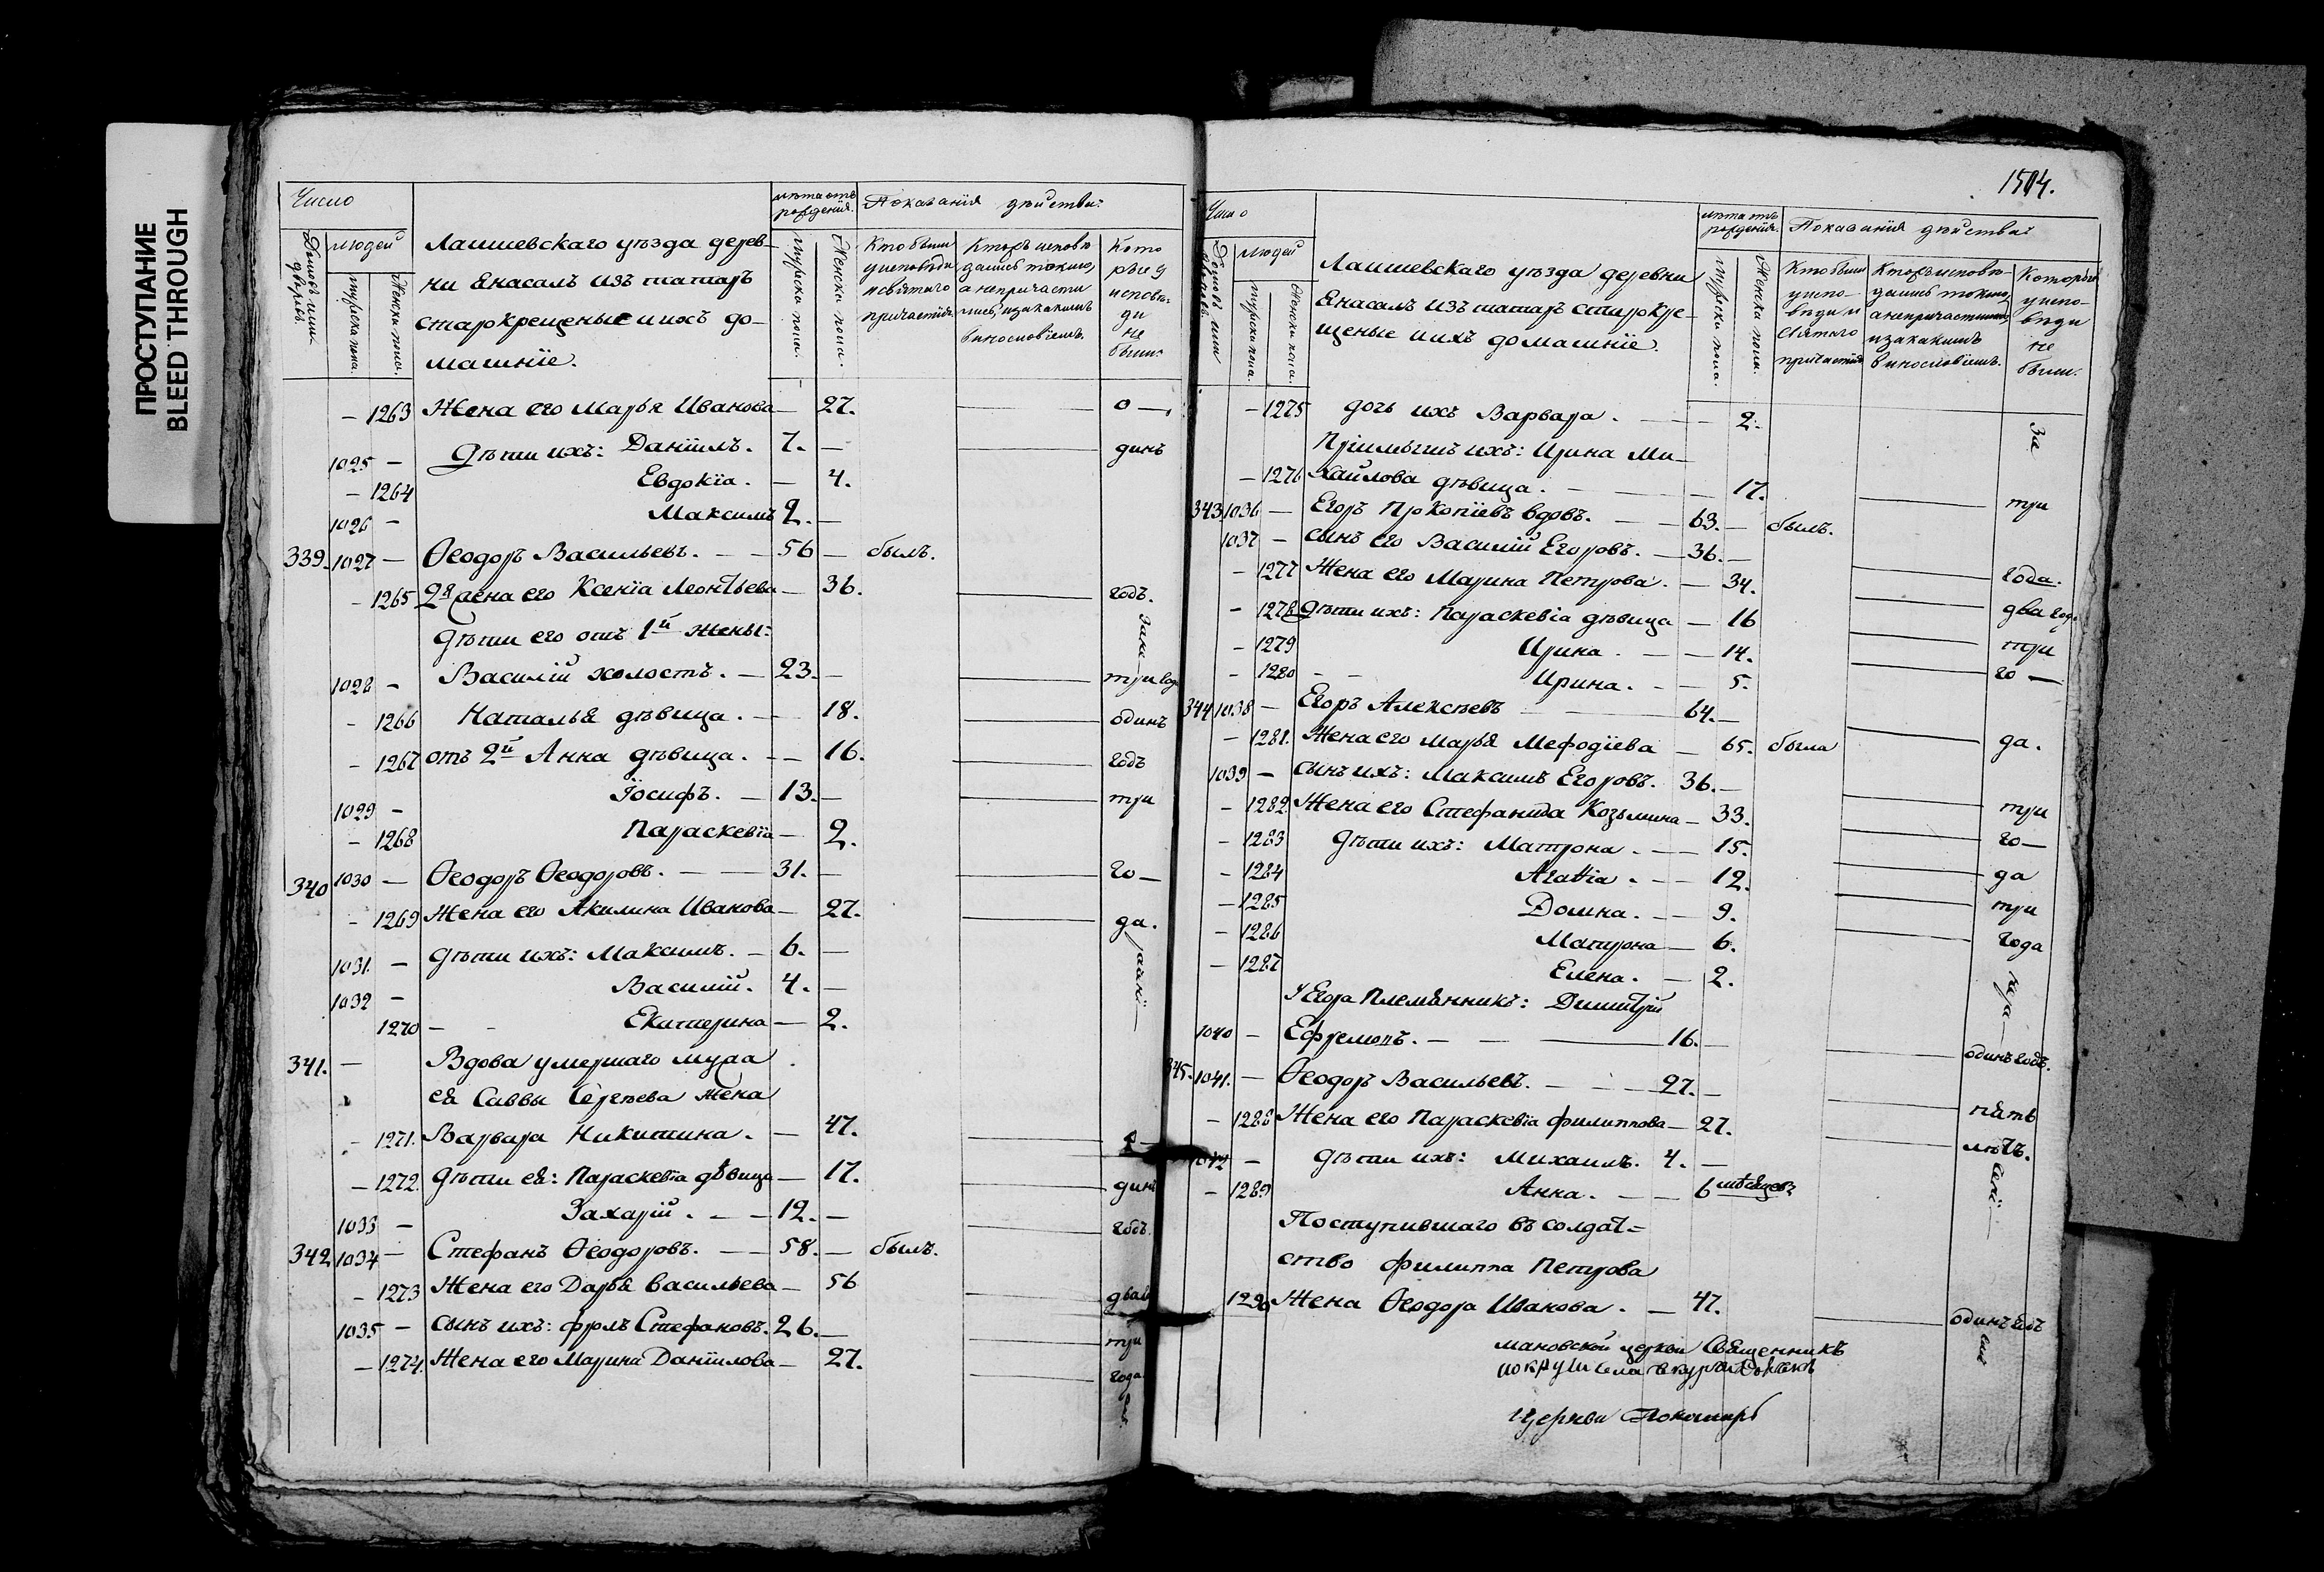 ПРОСТУПАНИЕ
BLEED THROUGH
Число
людей
Домовъ или дворовъ.
Мужска пола.
Женска пола.
Лаишевскаго уѣзда дерев-
ни Янасалъ изъ татаръ
старокрещеные и ихъ до-
машніе.
лѣта отъ рожденія.
Мужска пола.
Женска пола.
Показанія дѣйства:
Кто были у исповѣди и святаго причастія
Кто исповѣдались токмо, а непричастились, и за какимъ винословіемъ.
Которые у исповѣди не были:
– 1263 Жена его Марья Иванова – 27. о –
1025 – Дѣти ихъ: Даніилъ. 7. – динъ
– 1264 Евдокія. – 4.
1026 – Максимъ 2. –
339. 1027 – Ѳеодоръ Васильевъ. – – 56 – былъ.
– 1265 2я жена его Ксенія Леонтьева – 36. годъ.
Дѣти его отъ 1й жены:
1028 – Василій холостъ. – 23. – три
– 1266 Наталья дѣвица. – 18. одинъ
– 1267 отъ 2й Анна дѣвица. – – 16. годъ
1029 – Іосифъ. – 13. – три
– 1268 Параскевіа – 2.
340 1030 – Ѳеодоръ Ѳеодоровъ. – – 31. – го –
– 1269 Жена его Акилина Иванова – 27. да.
1031. – дѣти ихъ: Максимъ. – 6. –
1032 – Василій. 4. –
1270 – – Екатерина – 2.
341. – Вдова умершаго мужа
ея Саввы Сергѣева жена
– 1271. Варвара Никитина. – 47. о –
– 1272. Дѣти ея: Параскевіа дѣвица – 17. динъ
1033 – Захарій. – – 12. – годъ.
342 1034 – Стефанъ Ѳеодоровъ. – – 58. – былъ.
– 1273 Жена его Дарья Васильева – 56 два
1035 – сынъ ихъ: Фролъ Стефановъ. 26. – три
– 1274. Жена его Марина Даніилова – 27. года
1504.
Число
людей
Домовъ или дворовъ.
Мужска пола.
Женска пола.
Лаишевскаго уѣзда деревни
Янасалъ изъ татаръ старокре-
щеные и ихъ домашніе.
лѣта отъ рожденія.
Мужска пола.
Женска пола.
Показанія дѣйства:
Кто были у исповѣди и святаго причастія
Кто исповѣдались токмо, а непричастились, и за какимъ винословіемъ.
Которые у исповѣди не были:
– 1275 дочь ихъ Варвара. – – 2. За
Пріимышъ ихъ: Ирина Ми-
– 1276 хайлова дѣвица. – – – 17. три
343 1036 – Егоръ Прокопіевъ вдовъ. – – 63. – былъ.
1037 – сынъ его Василій Егоровъ. – 36. –
– 1277 Жена его Марина Петрова. – 34. года.
– 1278 Дѣти ихъ: Параскевіа дѣвица – 16 два
– 1279 Ирина. – – 14. три
– 1280 – – Ирина. – – 5. го –
344 1038 – Егоръ Алексѣевъ – 64. –
– 1281. Жена его Марья Мефодіева – 65. была да.
1039 – сынъ ихъ: Максимъ Егоровъ. 36. –
– 1282. Жена его Стефанида Козьмина – 33. три
– 1283 Дѣти ихъ: Матрона. – – 15. го –
– 1284 Агаѳіа. – – 12. да
– 1285 Домна. – – 9. три
– 1286 Матрона – 6. года
– 1287 Елена. – 2.
У Егора племянникъ: Димитрій
1040 – Ефремовъ. – – – 16. – одинъ годъ.
345. 1041. – Ѳеодоръ Васильевъ. – – – 27. –
– 1288 Жена его Параскевіа Филиппова – 27. пять
1042 – Дѣти ихъ: Михаилъ. 4. – лѣтъ.
– 1289 Анна. – – 6 мѣсяцевъ
Поступившаго въ солдат=
ство Филиппа Петрова
1290 Жена Ѳеодора Исакова. – – 47. одинъ годъ
мановской церкви Священникъ
церкви